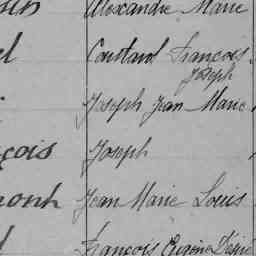 Alexandre Marie
Constant François
Joseph
Joseph Jean Marie
çois Joseph
mont Jean Marie Louis
François Eugène Désiré